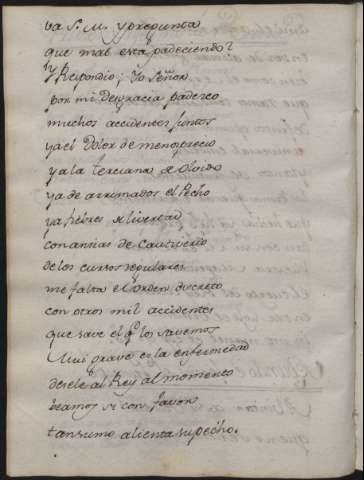 va S. M. y pregunta
que mal está padeciendo?
y Respondio; Yo Señor
por mi Desgracia padezco
muchos accidentes juntos
ya el Dolor de menosprecio
ya la terciana de Olvido
ya de arrimados el Pecho
ya fiebres
con ansias de Cautiverio
de los cursos regulares
me falta el Orden discreto
con otros mil accidentes
que save el q.e los savemos
Mui grave es la enfermedad
desele al Rey al momento
veamos si con favor
tan sumo alienta su pecho.